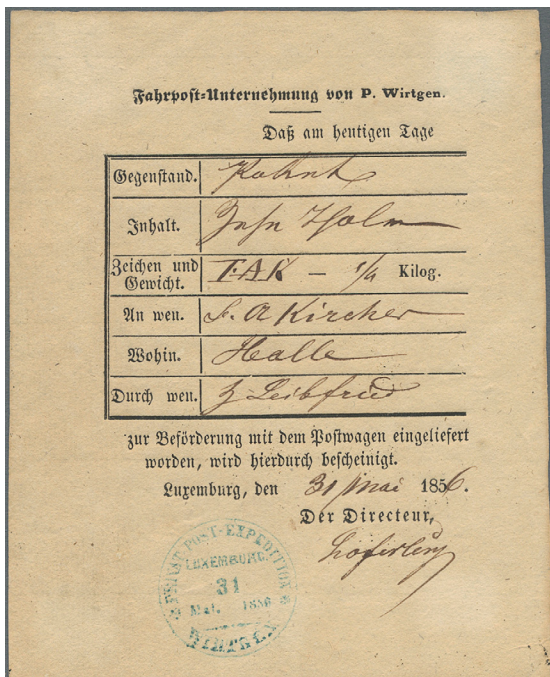 Fahrpost-Unternehmung von P. Wirtgen.
Daß am heutigen Tage
Gegenstand.
Inhalt. Zehn Thaler
Zeichen und Gewicht. F.A.K — 1/4 Kilog.
An wen. F. A Kircher
Wohin. Halle
Durch wen. Leibfried
zur Beförderung mit dem Postwagen eingeliefert
worden, wird hierdurch bescheinigt.
Luxemburg, den 31 Mai 1856.
Der Directeur,
POST-EXPEDITION
LUXEMBURG.
31
Mai. 1856
WIRTGEN